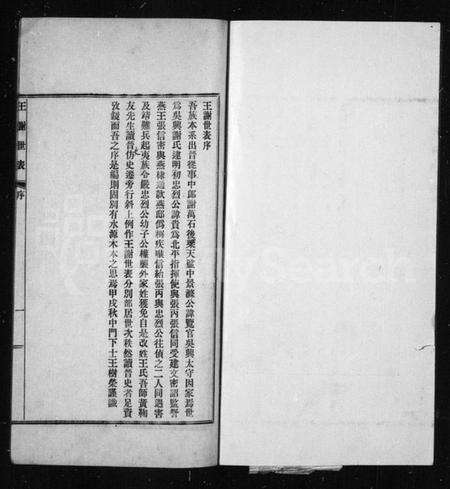 王謝世表序
吾族本系出晉從事中郎謝萬石後梁天監中景滌公諱覽官吳興太守因家焉世
為吳興謝氏逮明初忠烈公諱貴為北平指揮使與張丙張信同受建文密詔監詧
燕王張信密與燕棣通款燕邸偽稱疾噭信紿張丙與忠烈公往偵之二人同遇害
及靖難兵起夷族令嚴忠烈公幼子公權匿外家姓獲免自是改姓王氏吾師黃鞠
友先生讀晉仿史遷旁行斜上例作王謝世表分別部居世次秩然讀晉史者足資
攷鏡而吾之序是編則固別有水源木本之思焉甲戌秋中門下士王樹榮謹識
王謝世表
序